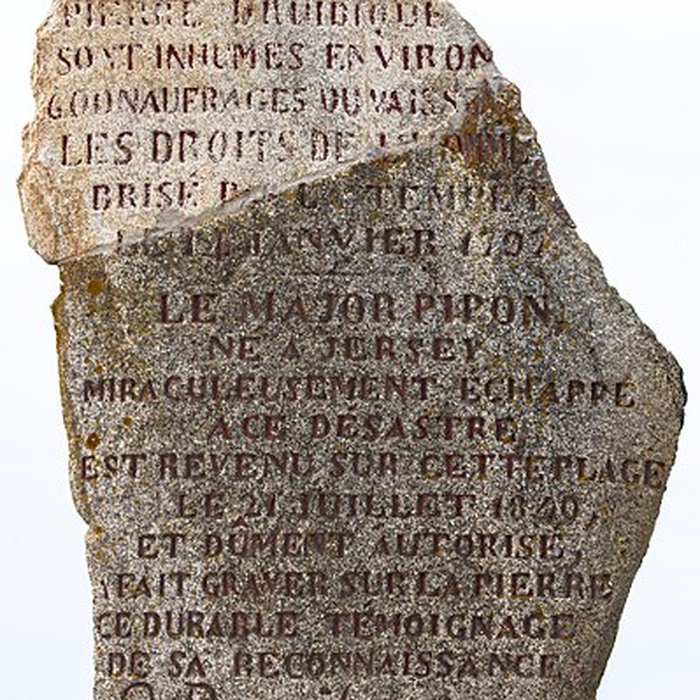 PIERRE DRUIDIQUE
SONT INHUMES ENVIRON
600 NAUFRAGES DU VAISSE
LES DROITS DE L'HOMME
BRISÉ PAR LA TEMPET
LE 14 JANVIER 1797
LE MAJOR PIPON,
NE A JERSEY
MIRACULEUSEMENT ÉCHAPPE
A CE DÉSASTRE,
EST REVENU SUR CETTE PLAGE
LE 21 JUILLET 1840,
ET DÛMENT AUTORISE,
A FAIT GRAVER SUR LA PIERRE
CE DURABLE TÉMOIGNAGE
DE SA RECONNAISSANCE